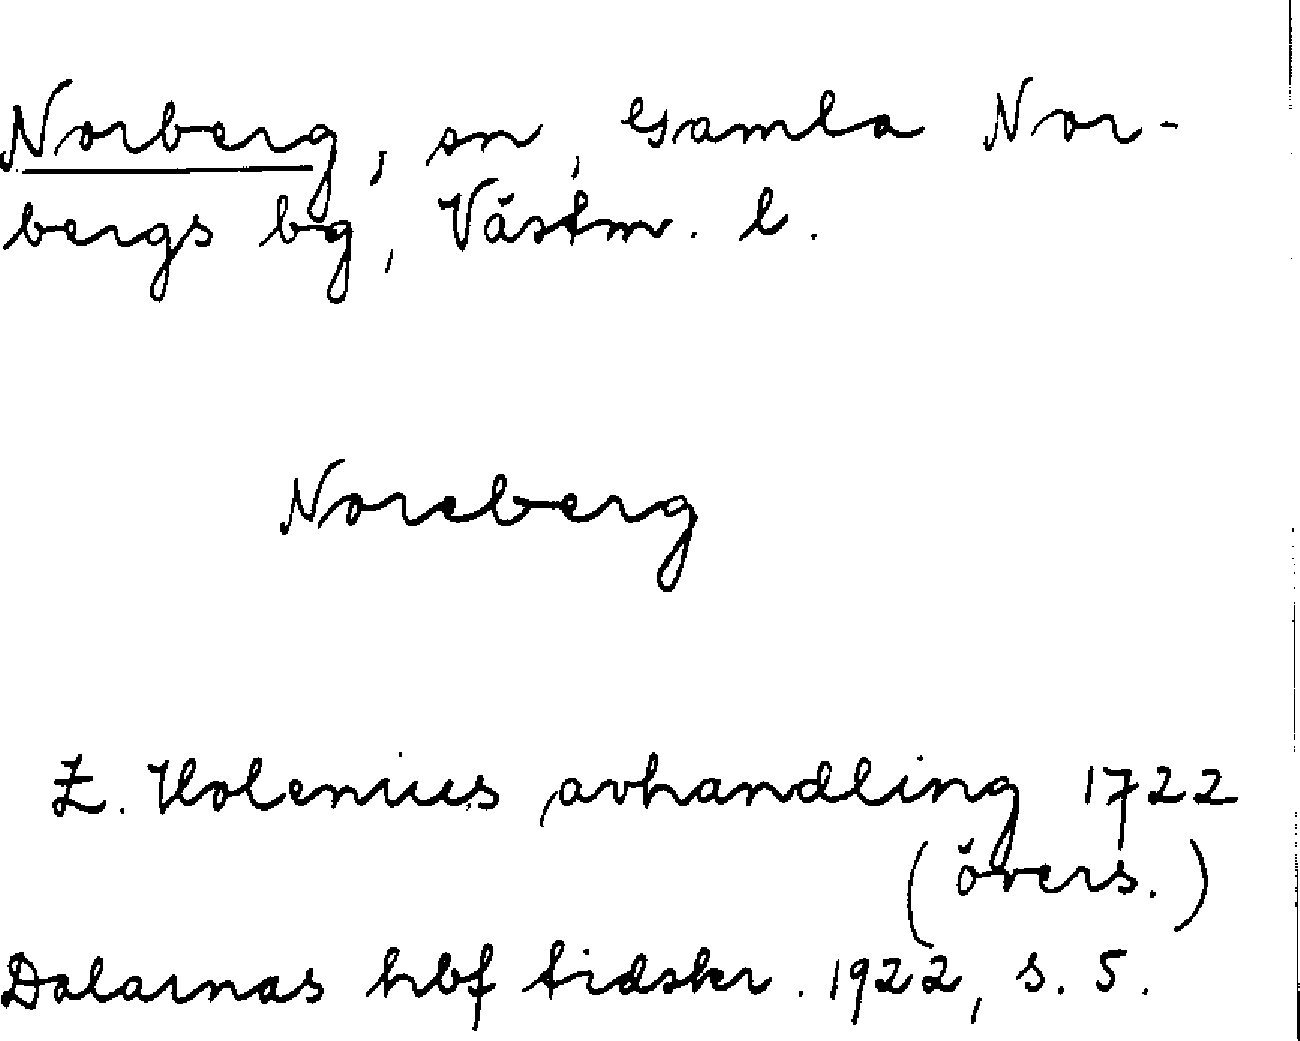 Norberg, sn, Gamla Nor-
bergs bg, Västm. l.
Noreberg
Z. Holenius avhandling 1722
(övers.)
Dalarnas hbf tidskr. 1922, s. 5.